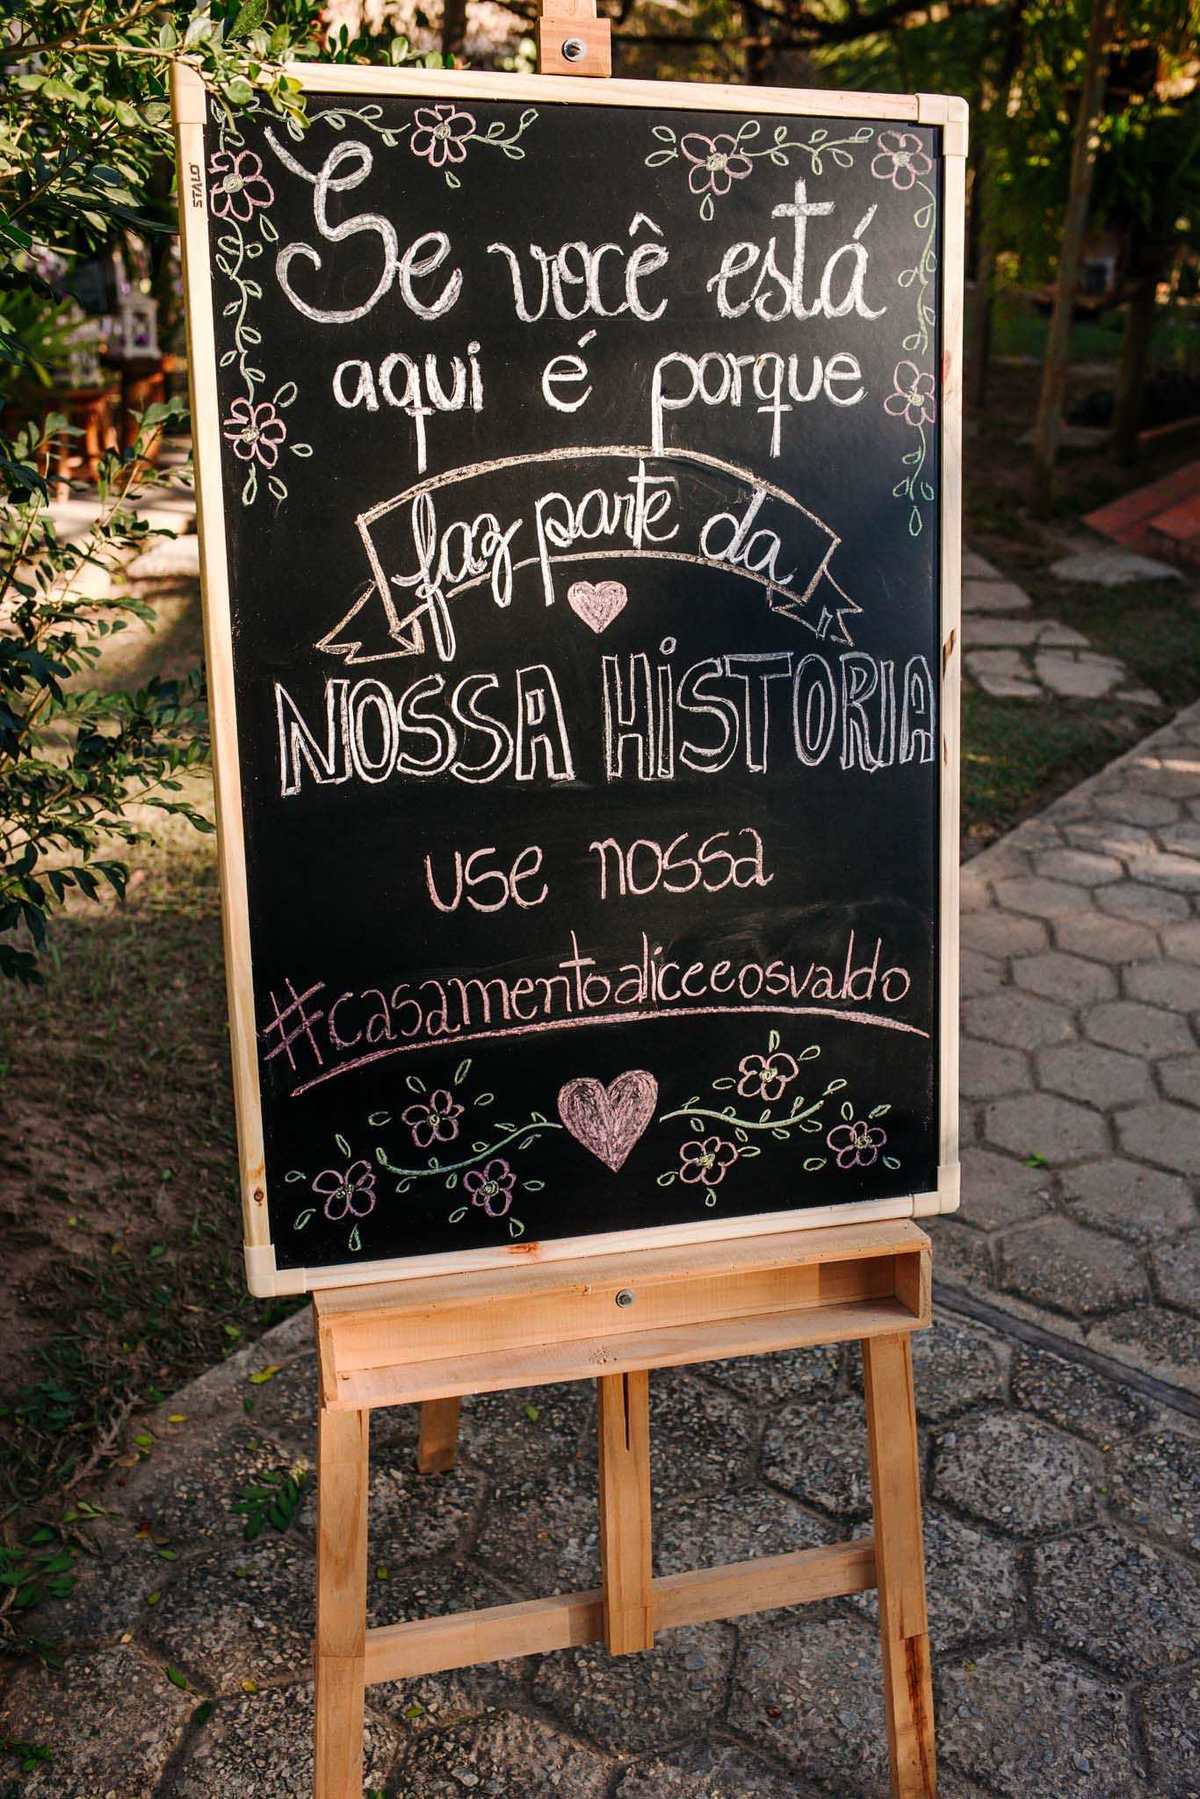 STALO
Se você está
aqui é porque
faz parte da
NOSSA HiSTORIA
use nossa
#casamentoaliceeosvaldo